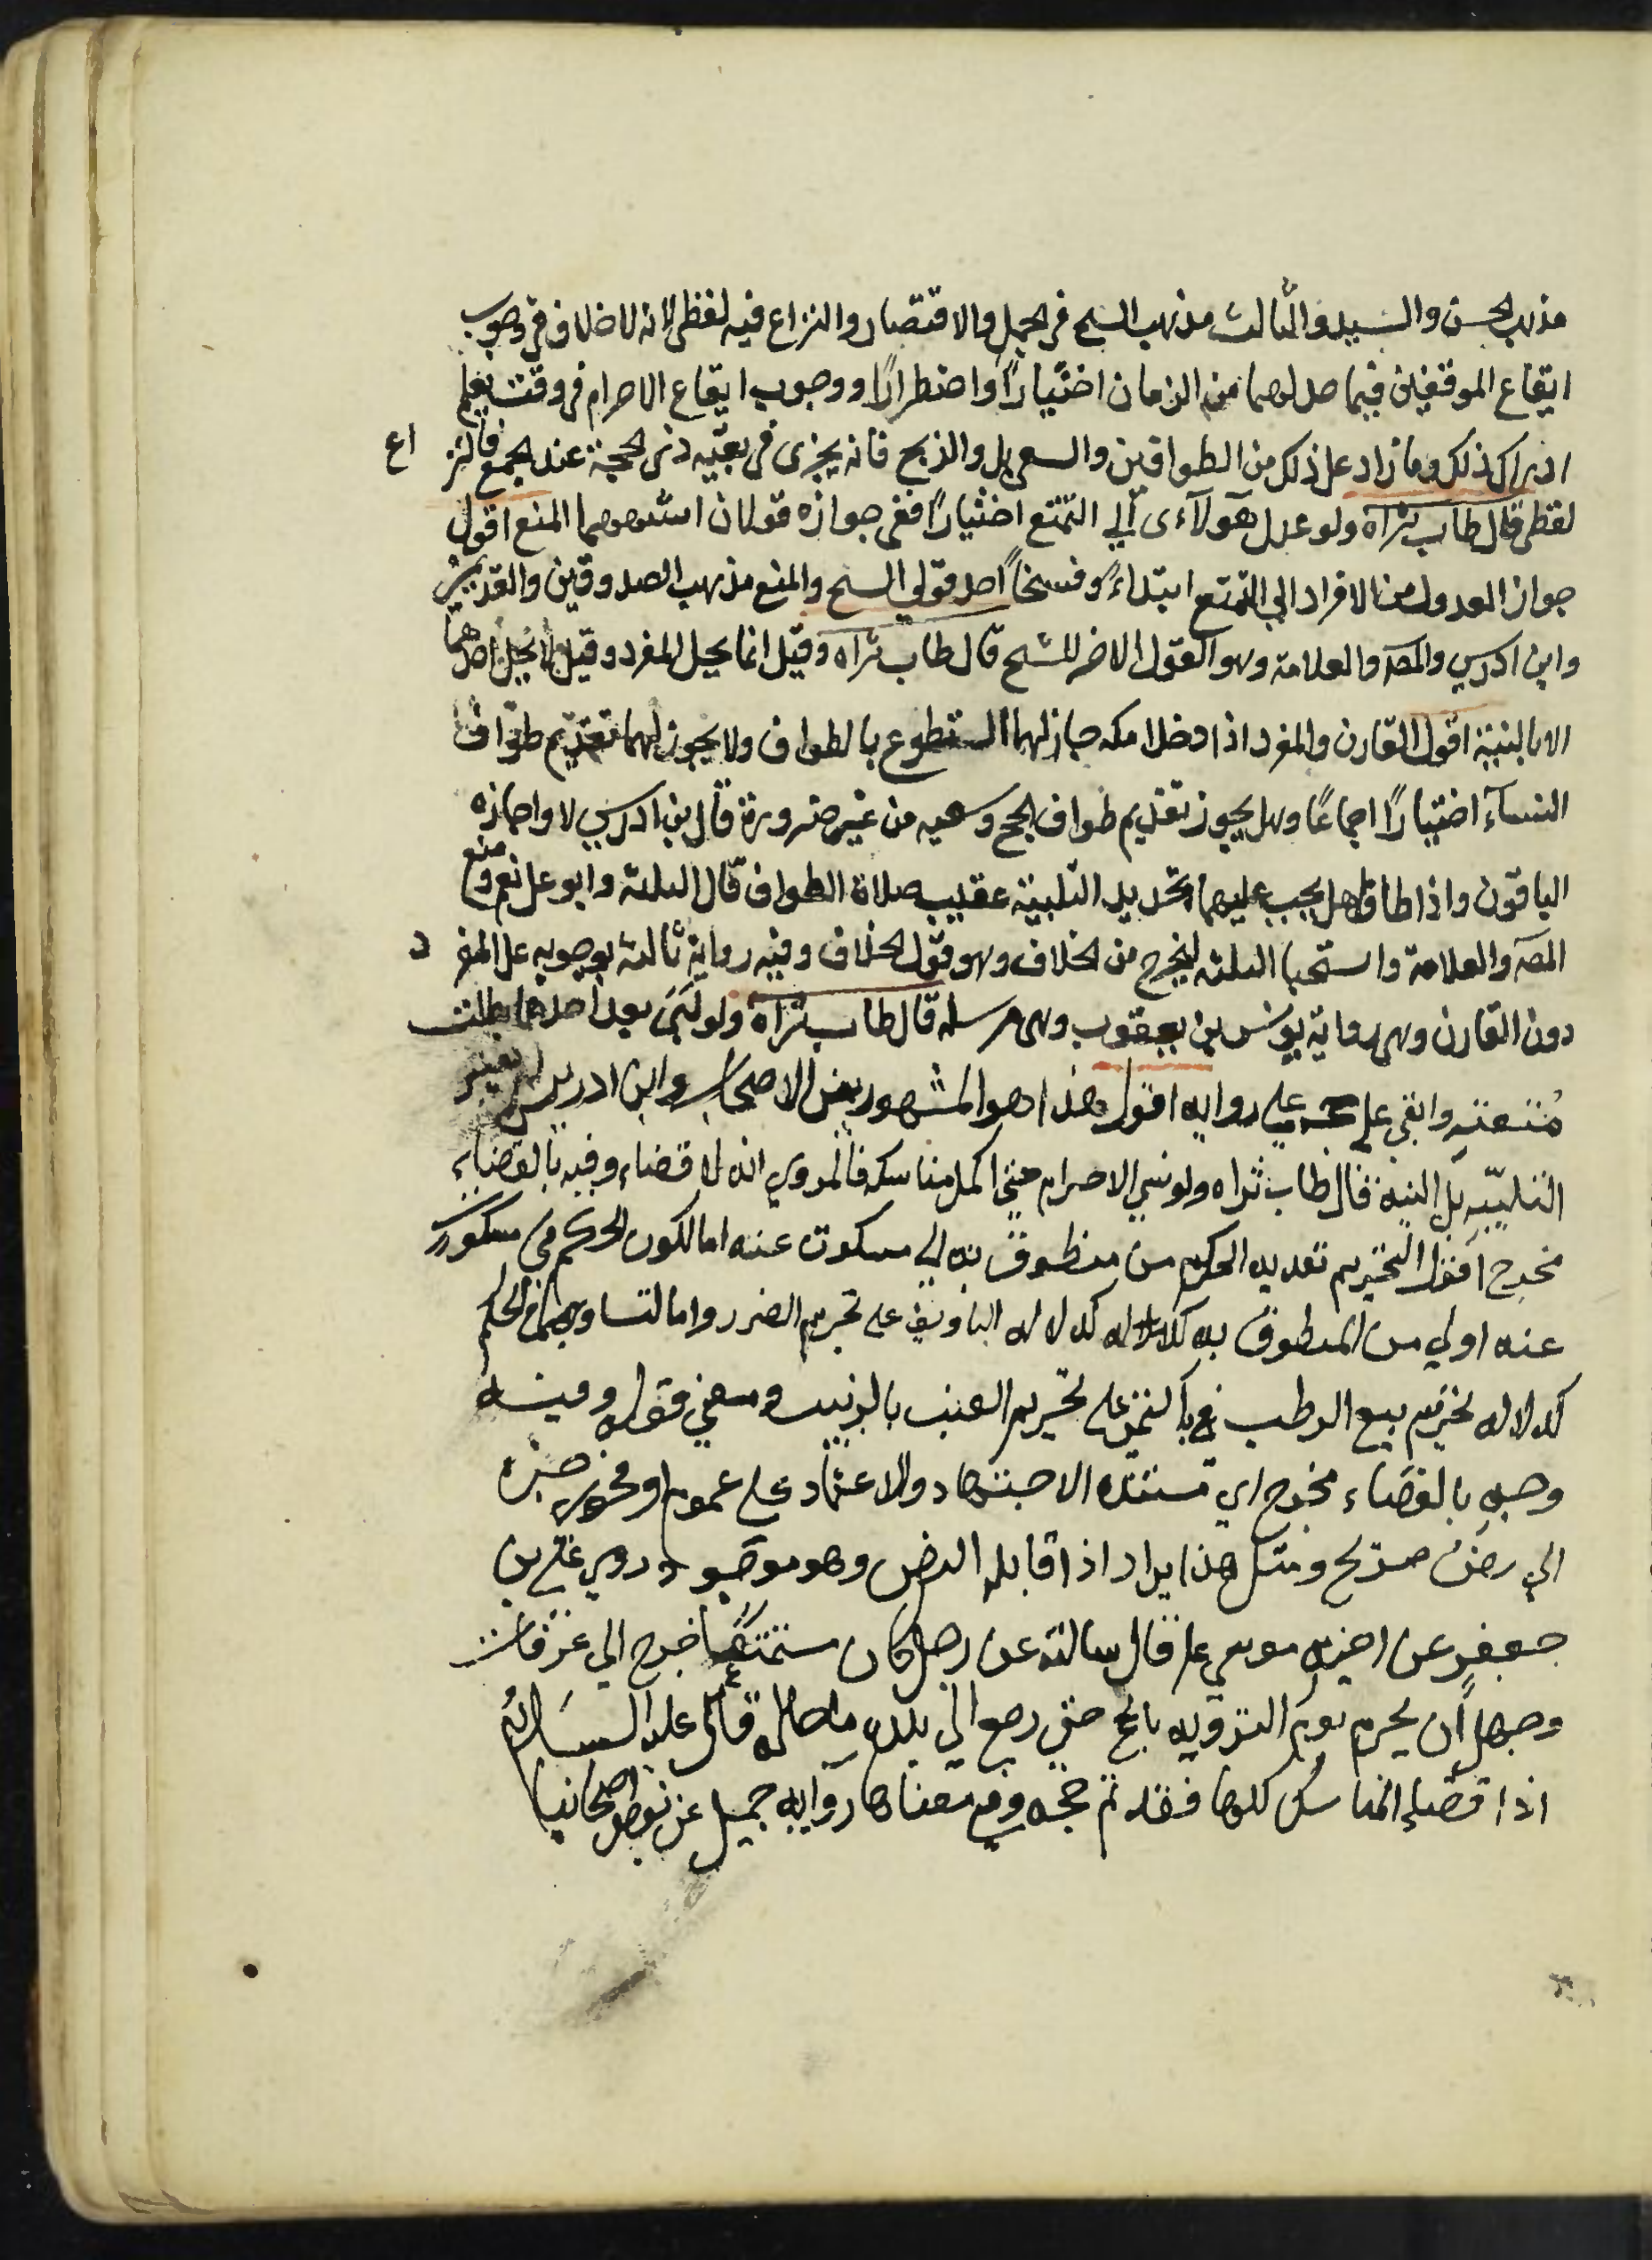 مذهب الحسن والسيد والثالث مذهب الشيخ في الجمل والاقتصاد والنزاع فيه لفظي لانه لا خلاف في وجوب
ايقاع الموقفين فيما حد لهما من الزمان اختيارًا واضطرارًا ووجوب ايقاع الاحرام في وقت يعلم
ادراك ذلك وما زاد على ذلك من الطوافين والسعي بل والذبح فانه يجزى في بقيه ذى الحجة عند الجمع فالنز اع
لفظي قال طاب ثراه ولو عدل هؤلآء ى الي التمتع اختيارًا ففي جوازه قولان اشبههما المنع اقول
جواز العدول من الافراد الي التمتع ابتداءً وفسخاً احد قولي الشيخ والمنع مذهب الصدوقين والقديمين
وابن ادريس والمصه والعلامة وهو القول الاخر للشيخ قال طاب ثراه وقيل انما يحل المفرد وقيل لا يحل احدهما
الا بالنية اقول القارن والمفرد اذا دخلا مكه جاز لهما التطوع بالطواف ولا يجوز لهما تقديم طواف
النسآء اختيارًا اجماعًا وهل يجوز تقديم طواف الحج وسعيه من غير ضرورة قال بن ادريس لا واجازه
الباقون واذا طافا هل يجب عليهما تجديد التلبية عقيب صلاة الطواف قال الثلثة وابو على نعم ومنع
المصه والعلامة واستحبا الثلثه ليخرج من الخلاف وهو قول الخلاف وفيه رواية ثالثه بوجوبه على المفر د
دون القارن وهى رواية يونس بن يعقوب وهى مرسله قال طاب ثراه ولو لبى بعد احدهما بطلت
مُتعته وابقي على علي روايه اقول هذا هو المشهور بين الاصحاب وابن ادريس لم يعتبر
التلبّيه بل النية قال طاب ثراه ولو نسي الاحرام حتي اكمل مناسكه فالمروي انه لا قضاء وفيه بالقضاء
مخرج اقول التخريم تعديه الحكم من منطوق به الي مسكوت عنه اما لكون الحكم في مسكور
عنه اولي من المنطوق به كدلاله التافيف علي تحريم الضرر واما لتساويهما في الحكم
كدلاله تحريم بيع الرطب بالتمر علي تحريم العنب بالزبيب ومعني قوله وفيه
وجه بالقضاء مخرج اي مستنده الاجتهاد والاعتماد علي عموم او فحوي خبره
الي رض صريح ومثل هذا يراد اذا قابله النص وهو موجود روي علي بن
جعفر عن اخيه موسي عل قال سالته عن رجل كان متمتعًا خرج الي عرفات
وجهل أن يحرم يوم الترويه بالحج حتي رجع الي بلده ما حاله قال عليه السلام
اذا قضاء المناسك كلها فقد تم حجه وفي معناها روايه جميل عن بعض اصحابنا